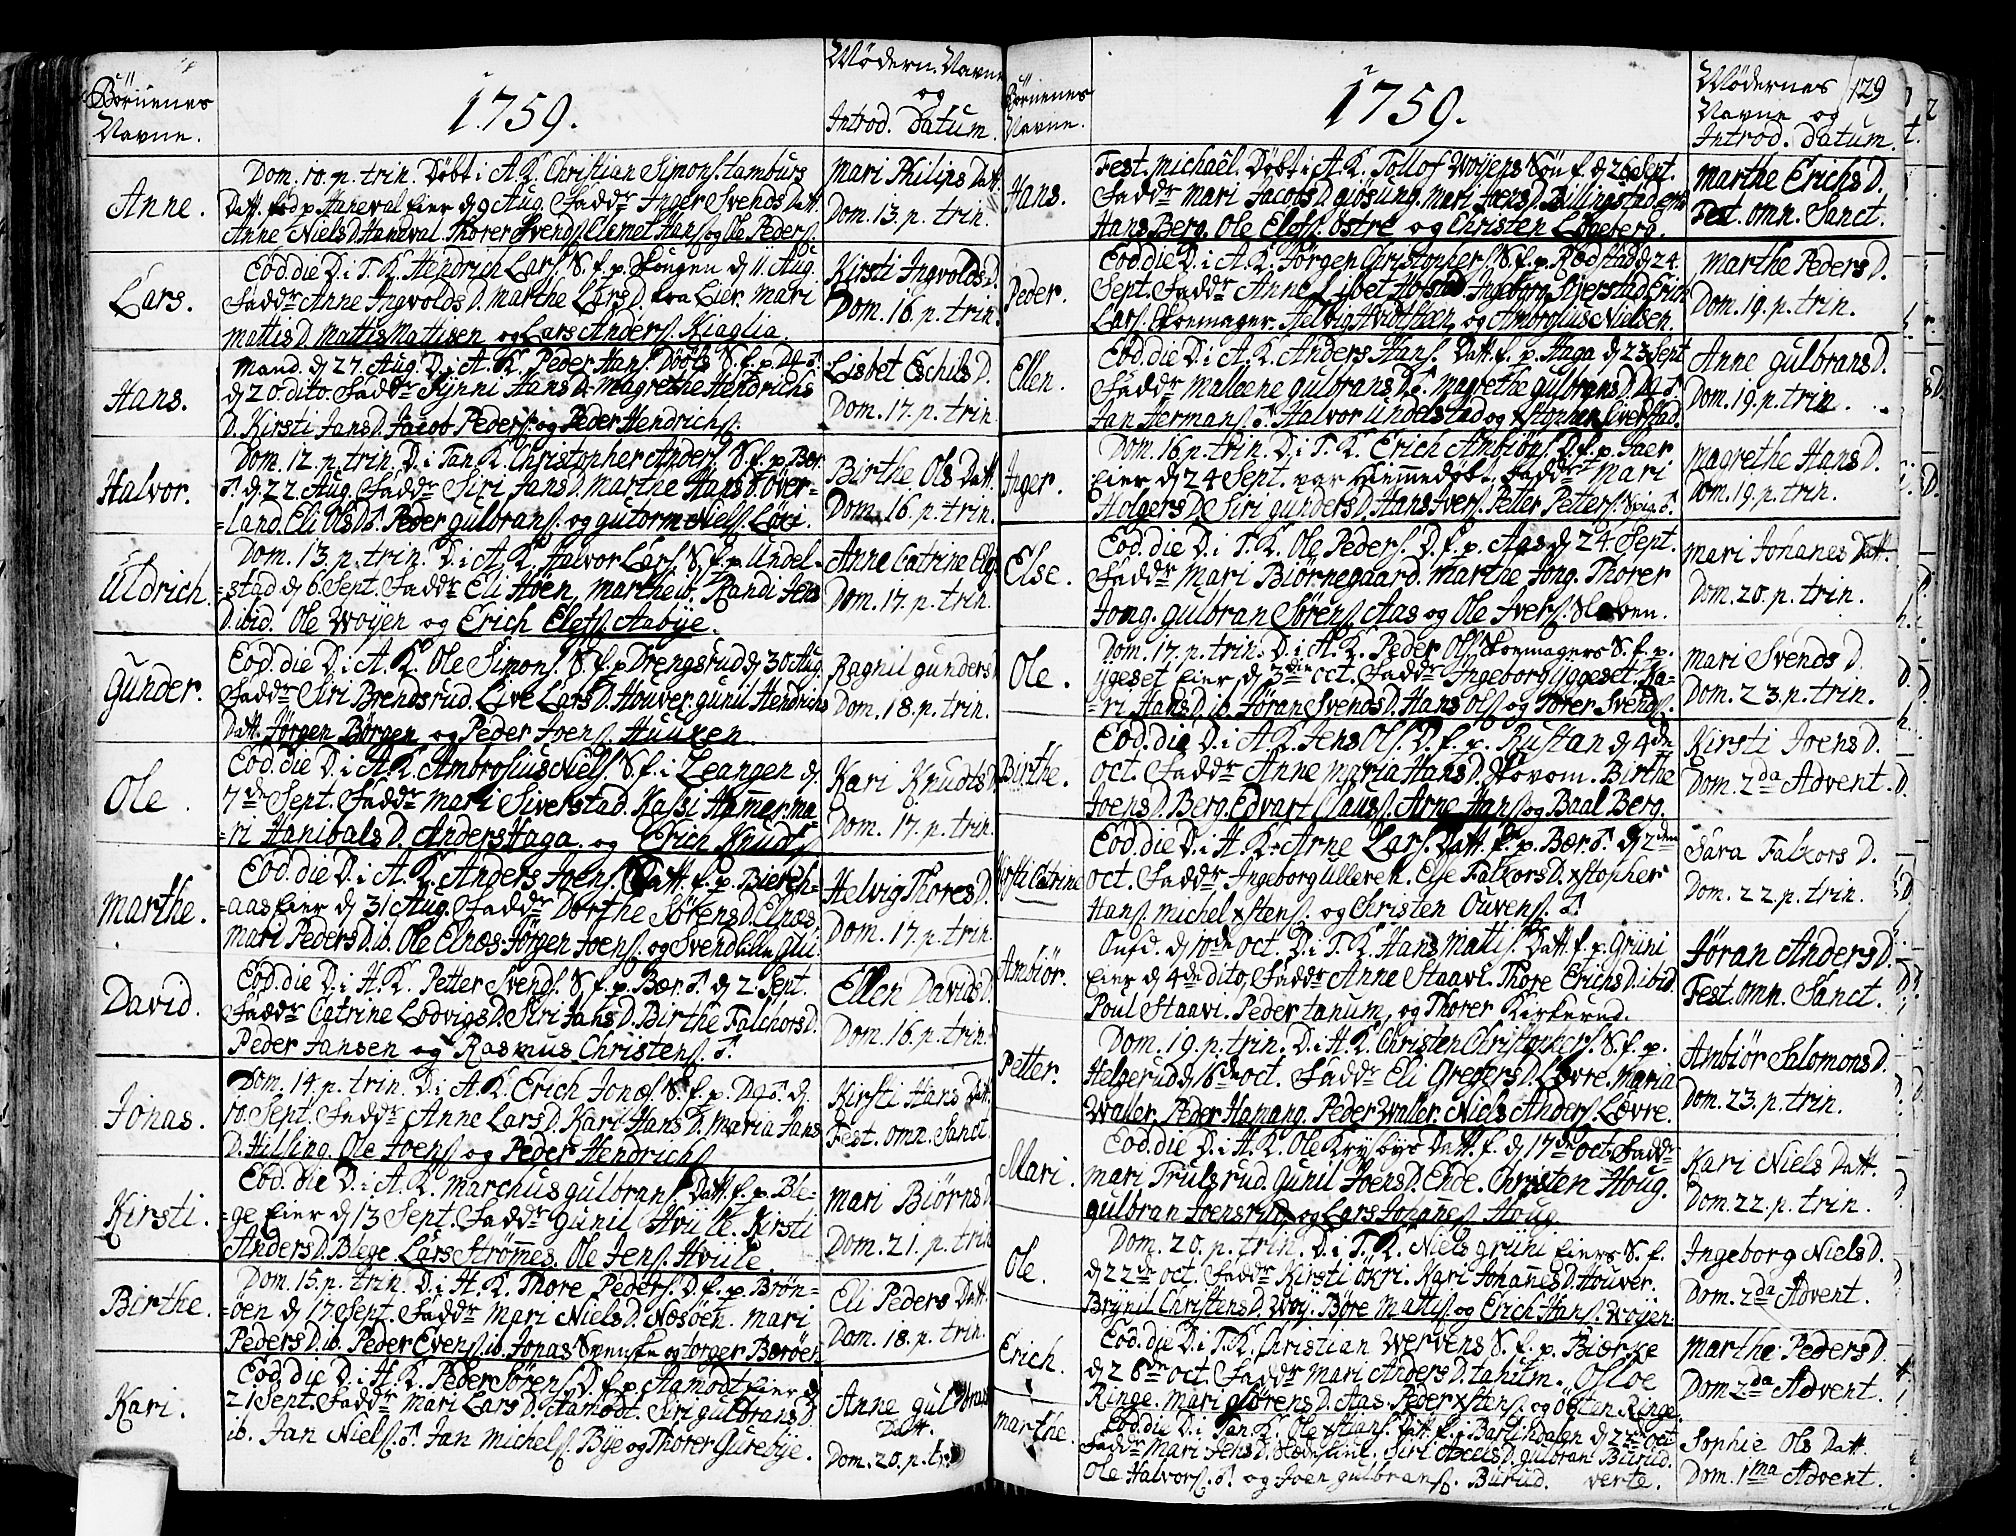 Börnenes
Navne.
1759.
Mödern. Navne
og
Introd. datum.
Anne.
Dom. 10. p. trin. Döbt i A. K. Christian Simons. tamburs
Datt. fød p. Haneval eier d 9 Aug. Faddr Inger Svends Datt.
Anne Niels D. Haneval. Thorer Svends. Clemet Hans. og Ole Peders.
Mari Philips Datt.
Dom. 13. p. trin.
Lars.
Eod. die D. i T. K. Hendrich Lars. S. f. p. Skougen d 11. Aug.
Faddr Anne Ingvolds D. Marthe Lars D. fra Lier. Mari
Mattis D. Mattis Mattisen og Lars Anders. Kiaglia.
Kirsti Ingvolds D.
Dom. 16. p. trin.
Hans.
Mand. d 27. Aug. D. i A. K. Peder Hans. S. f. p.
d 20. dito. Faddr Synni Hans D. Magrethe Hendrichs
D. Kirsti Jans D. Jacob Peders. og Peder Hendrichs.
Lisbet Eschils D.
Dom. 17. p. trin.
Halvor.
Dom. 12. p. trin. D. i Tan. K. Christopher Anders. S. f. p. Bær.
d 22 Aug. Faddr Siri Jans D. Marthe Hans D. Over-
=land. Eli Ols D. Peder Gulbrans. og Gutorm Niels. Löxi.
Birthe Ols Datt.
Dom. 16. p. trin.
Uldrich.
Dom. 13. p. trin. D. i A. K. Halvor Lars. S. f. p. Undel-
=stad d 6 Sept. Faddr Eli Hoen, Marthe ib. Randi Jens
D. ibid. Ole Woyen og Erich Elefs. Aabÿe.
Anne Catrine
Dom. 17. p. trin.
Gunder.
Eod. die D. i A. K. Ole Simons. S. f. p. Drengsrud d 30 Aug.
Faddr Siri Brendsrud. Live Lars D. Houver. Gunil Hendrichs
Datt. Jörgen Börgen og Peder Joens. Huuken.
Ragnil Gunders D
Dom. 18. p. trin.
Ole.
Eod. die D. i A. K. Ambrosius Niels. S. f. i Leangen d
7de Sept. Faddr Mari Siverstad. Kassi Hammer. Ma-
=ri Hanibals D. Anders Haga. og Erich Knuds.
Kari Knudts D
Dom. 17. p. trin.
Marthe.
Eod. die D. i A. K. Anders Joens. Datt. f. p. Biereh-
=aas eier d 31 Aug. Faddr Dorthe Sörens D. Elnæs
Mari Peders D. ib. Ole Elnæs. Jörgen Joens. og Svend
Helvig Thores D.
Dom. 17. p. trin.
David.
Eod. die D. i H. K. Petter Svends. S. f. p. Bær. d 2. Sept.
Faddr Catrine Lodvigs D. Siri Jans D. Birthe Falchors D.
Peder Jansen og Rasmus Christens.
Ellen Davids D.
Dom. 16. p. trin.
Jonas.
Dom. 14. p. trin. D. i A. K. Erich Jonæs. S. f. p. d.
10. Sept. Faddr Anne Lars D. Kari Hans D. Maria Hans
D. Hilling. Ole Joens. og Peder Hendrichs.
Kirsti Hans Datt.
Fest. omn. Sanct.
Kirsti.
Eod. die D. i A. K. Marchus Gulbrans. Datt. f. p. Ble-
=ge eier d 13 Sept. Faddr Gunil Hvile. Kirsti
Anders D. Blege. Lars Strömmes. Ole Jens. Hvile.
Mari Biörns D
Dom. 21. p. trin
Birthe.
Dom. 15. p. trin. D. i H. K. Thore Peders. D. f. p. Brön-
=öen d 17 Sept. Faddr Mari Niels D. Næsöen. Mari
Peders D. ib. Peder Evens. ib. Jonas Svenske og Torger Bæröer.
Eli Peders Datt.
Dom. 18. p. trin.
Kari.
Eod. die D. i H. K. Peder Sörens D. f. p. Aamodt eier d
21 Sept. Faddr Mari Lars D. Aamodt. Siri Gulbrans D
ib. Jan Niels. Jan Michels. Bye og Thorer Gurebye.
Anne Gulbrans
Datt.
Dom. 20. p. tr.
Börnenes
Navne.
1759.
Mödernes
Navne og
Introd. datum.
129
Hans.
Fest. Michaël. Döbt i A. K. Tollof Woyens Sön f. d 26 Sept.
Faddr Mari Jacobs D. Giösung. Mari Joens D. Billingstad.
Hans Berg. Ole Elefs. Östre og Christen Løgeberg.
Marthe Erichs D.
Fest. omn. Sanct.
Peder.
Eod. die D. i A. K. Jörgen Christophers. S. f. p. Rödstad d 24
Sept. Faddr Anne Lisbet Hofstad. Ingeborg Siverstad. Erich
Lars. Skoemager. Helvig Hvidsteen og Ambrosius Nielsen.
Marthe Peders D.
Dom. 19. p. trin.
Ellen.
Eod. die D. i A. K. Anders Hans. Datt. f. p. Haga d 23 Sept
Faddr Malleene Gulbrans D. Magrethe Gulbrans D.
Jan Hermans. Halvor Undelstad og xstopher Överstad.
Anne Gulbrans D.
Dom. 19. p. trin.
Inger.
Dom. 16. p. trin. D. i T. K. Erich Ambiöns. D. f. p. Jaer
eier d 24 Sept. var Hiemmedöbt. Faddr Mari
Holgers D. Siri Gunders D. Hans Ivers. Petter Petters. Spig.
Magrethe Hans D.
Dom. 19. p. trin.
Else.
Eod. die D. i T. K. Ole Peders. D. f. p. Aas d 24. Sept.
Faddr Mari Biörnegaard. Marthe Jong. Thorer
Jong. Gulbran Sörens. Aas og Ole Ivers. Slæben.
Mari Johanes Datt.
Dom. 20. p. trin.
Ole.
Dom. 17. p. trin. D. i A. K. Peder Ols. Skoemagers S. f. p.
Yggeset eier d 3die oct. Faddr Ingeborg Yggeset. Ka-
=ri Hans D. ib. Jöran Svends D. Hans Ols. og Torer Svends.
Mari Svends D.
Dom. 23. p. trin.
Birthe.
Eod. die D. i A. K. Jens Ols. D. f. p. Rustan d 4de
oct. Faddr Anne Maria Hans D. Skovom. Birthe
Joens D. Berg. Edvart Claus. Arne Hans. og Baal Berg.
Kirsti Joens D.
Dom. 2da Advent.
Kirsti Catrine
Eod. die D. i H. K. Arne Lars. Datt. f. p. Bær. d 2den
oct. Faddr Ingeborg Ulleren. Else Falkors D. xstopher
Hans. Michel xstens. og Christen Ouvens.
Sara Falkors D.
Dom. 22. p. trin.
Ambiör.
Onsd. d 10de oct. D. i T. K. Hans Mattis. Datt. f. p. Grüni
eier d 4de dito, Faddr Anne Staavi. Thore Erichs D. ibid.
Poul Staavi. Peder Tanum, og Thorer Kirkerud.
Jöran Anders D.
Fest. omn. Sanct.
Petter.
Dom. 19. p. trin. D. i H. K. Christen Christophers. S. f. p.
Helgerud d 16de oct. Faddr Eli Gregers D. Løvre. Maria
Waller. Peder Hamang. Peder Waller. Niels Anders. Løvre.
Ambiör Salomons D.
Dom. 23. p. trin.
Mari.
Eod. die D. i H. K. Ole Krysbys Datt. f. d 17de oct. Faddr
Mari Trulsrud. Gunil Joens D. Ende. Christen Houg.
Gulbran Joensrud og Lars Johannes. Houg.
Kari Niels Datt.
Dom. 22. p. trin.
Ole.
Dom. 20. p. trin. D. i T. K. Niels Grüni eiers S. f.
d 22de oct. Faddr Kirsti Ökri. Kari Johannes D. Houver.
Brynil Christens D. Woy. Böre Mattis. og Erich Hans. Woyen.
Ingeborg Niels D.
Dom. 2da Advent.
Erich.
Eod. die D. i T. K. Christian Wervens S. f. p. Biærke
d 26de oct. Faddr Mari Anders D. Tanum. Osloe
Ringe. Mari Sörens D. Aas. Peder xstens. og Östen Ringe.
Marthe Peders D.
Dom 2da Advent.
Marthe.
Eod. die D. i Tan. K. Ole xstians. Datt. f. i Bærumdalen d 22de oct.
Faddr Mari Jens D. Siri Axels D. Gulbran Burud.
Ole Halvors. og Joen Gulbrans. Burud. verte.
Sophie Ols Datt.
Dom. 1ma Advent.